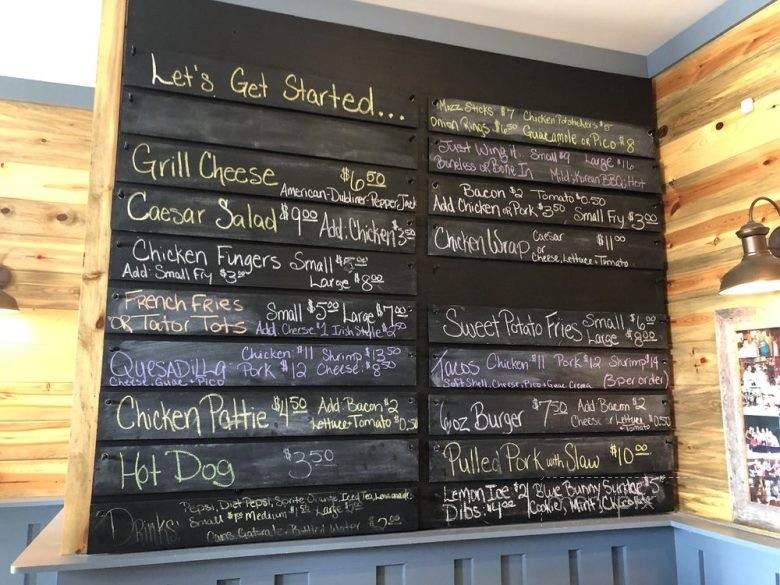 Let's Get Started...
Grill Cheese $6.50
American-Dubliner-Pepper Jack
Caesar Salad $9.00 Add: Chicken 3.50
Chicken Fingers Small $5.00
Add: Small Fry $3.00 Large $8.00
French Fries Small $5.00 Large $7.00
or Tator Tots Add Cheese $1 Irish Style $2.50
Quesadilla Chicken $11 Shrimp $13.50
Pork $12 Cheese $8.50
Cheese, Guac + Pico
Chicken Pattie $4.50 Add Bacon $2
Lettuce + Tomato $0.50
Hot Dog $3.50
Drinks: Pepsi, Diet Pepsi, Sprite Orange Iced Tea, Lemonade
Small Medium Large
Cans, Gatorade, Bottled Water $2.00
Mozz Sticks $7 Chicken Potstickers
Onion Rings $6.50 Guacamole or Pico $8
Just Wing it Small $9 Large $16
Boneless or Bone In Mild, Korean BBQ, Hot
Bacon $2 Tomato $0.50
Add Chicken or Pork $3.50 Small Fry $3.00
Chicken Wrap Caesar $11.00
or
Cheese, Lettuce + Tomato
Sweet Potato Fries Small $6.00
Large $8.00
Tacos Chicken $11 Pork $12 Shrimp $14
Soft Shell, Cheese, Pico + Guac Crema (3 per order)
6oz Burger $7.50 Add Bacon $2
Cheese or Lettuce + Tomato $0.50
Pulled Pork with Slaw $10.00
Lemon Ice $2 Blue Bunny Sundae $5
Dibs: $4.00 Cookie, Mint,